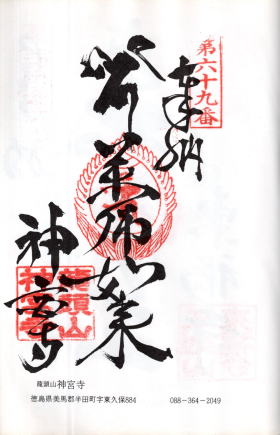 第六十九番
奉納
薬師如来
神宮寺
龍頭山神宮寺
徳島県美馬郡半田町字東久保884 088-364-2049